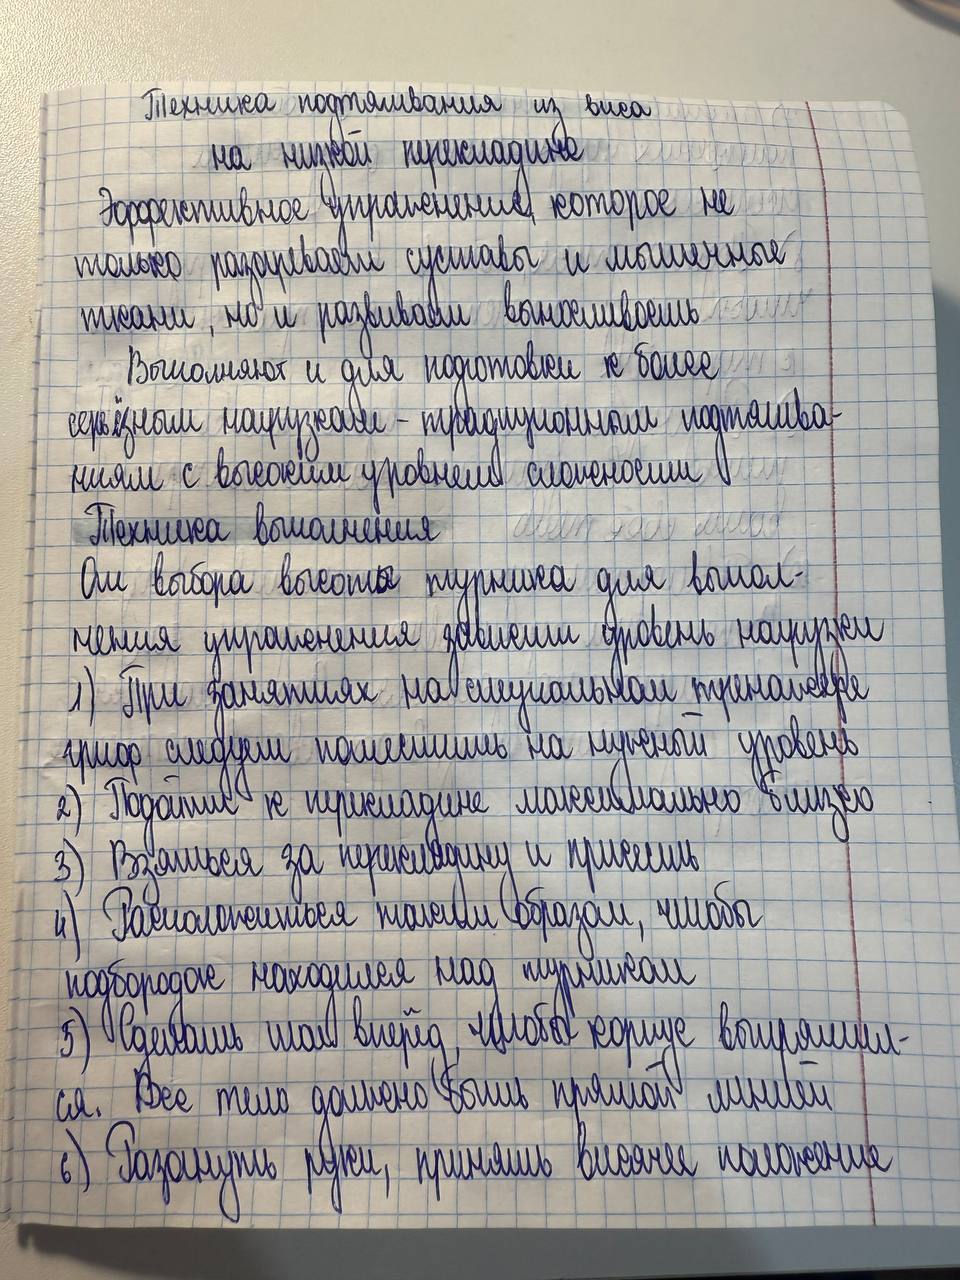 Техника подтягивания из виса
на низкой перекладине
Эффективное упражнение, которое не
только разогревает суставы и мышечные
ткани, но и развивает выносливость
Выполняют и для подготовки к более
серьёзным нагрузкам - традиционным подтягива-
ниям с высоким уровнем сложности
Техника выполнения
От выбора высоты турника для выпол-
нения упражнения зависит уровень нагрузки
1) При занятиях на специальном тренажере
гриф следует поместить на нужный уровень
2) Подойти к перекладине максимально близко
3) Взяться за перекладину и присесть
4) Расположиться таким образом, чтобы
подбородок находился над турником
5) Сделать шаг вперёд, чтобы корпус выпрямил-
ся. Все тело должно быть прямой линией
6) Разогнуть руки, принять висячее положение